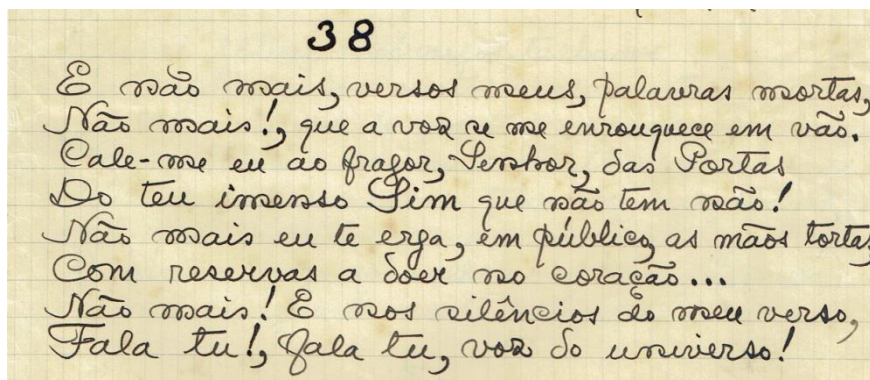 38
E não mais, versos meus, palavras mortas,
Não mais!, que a voz se me enrouquece em vão.
Cale-me eu ao fragor, Senhor, das Portas
Do teu imenso Sim que não tem não!
Não mais eu te erga, em público, as mãos tortas,
Com reservas a doer no coração...
Não mais! E nos silêncios do meu verso,
Fala tu!, fala tu, voz do universo!